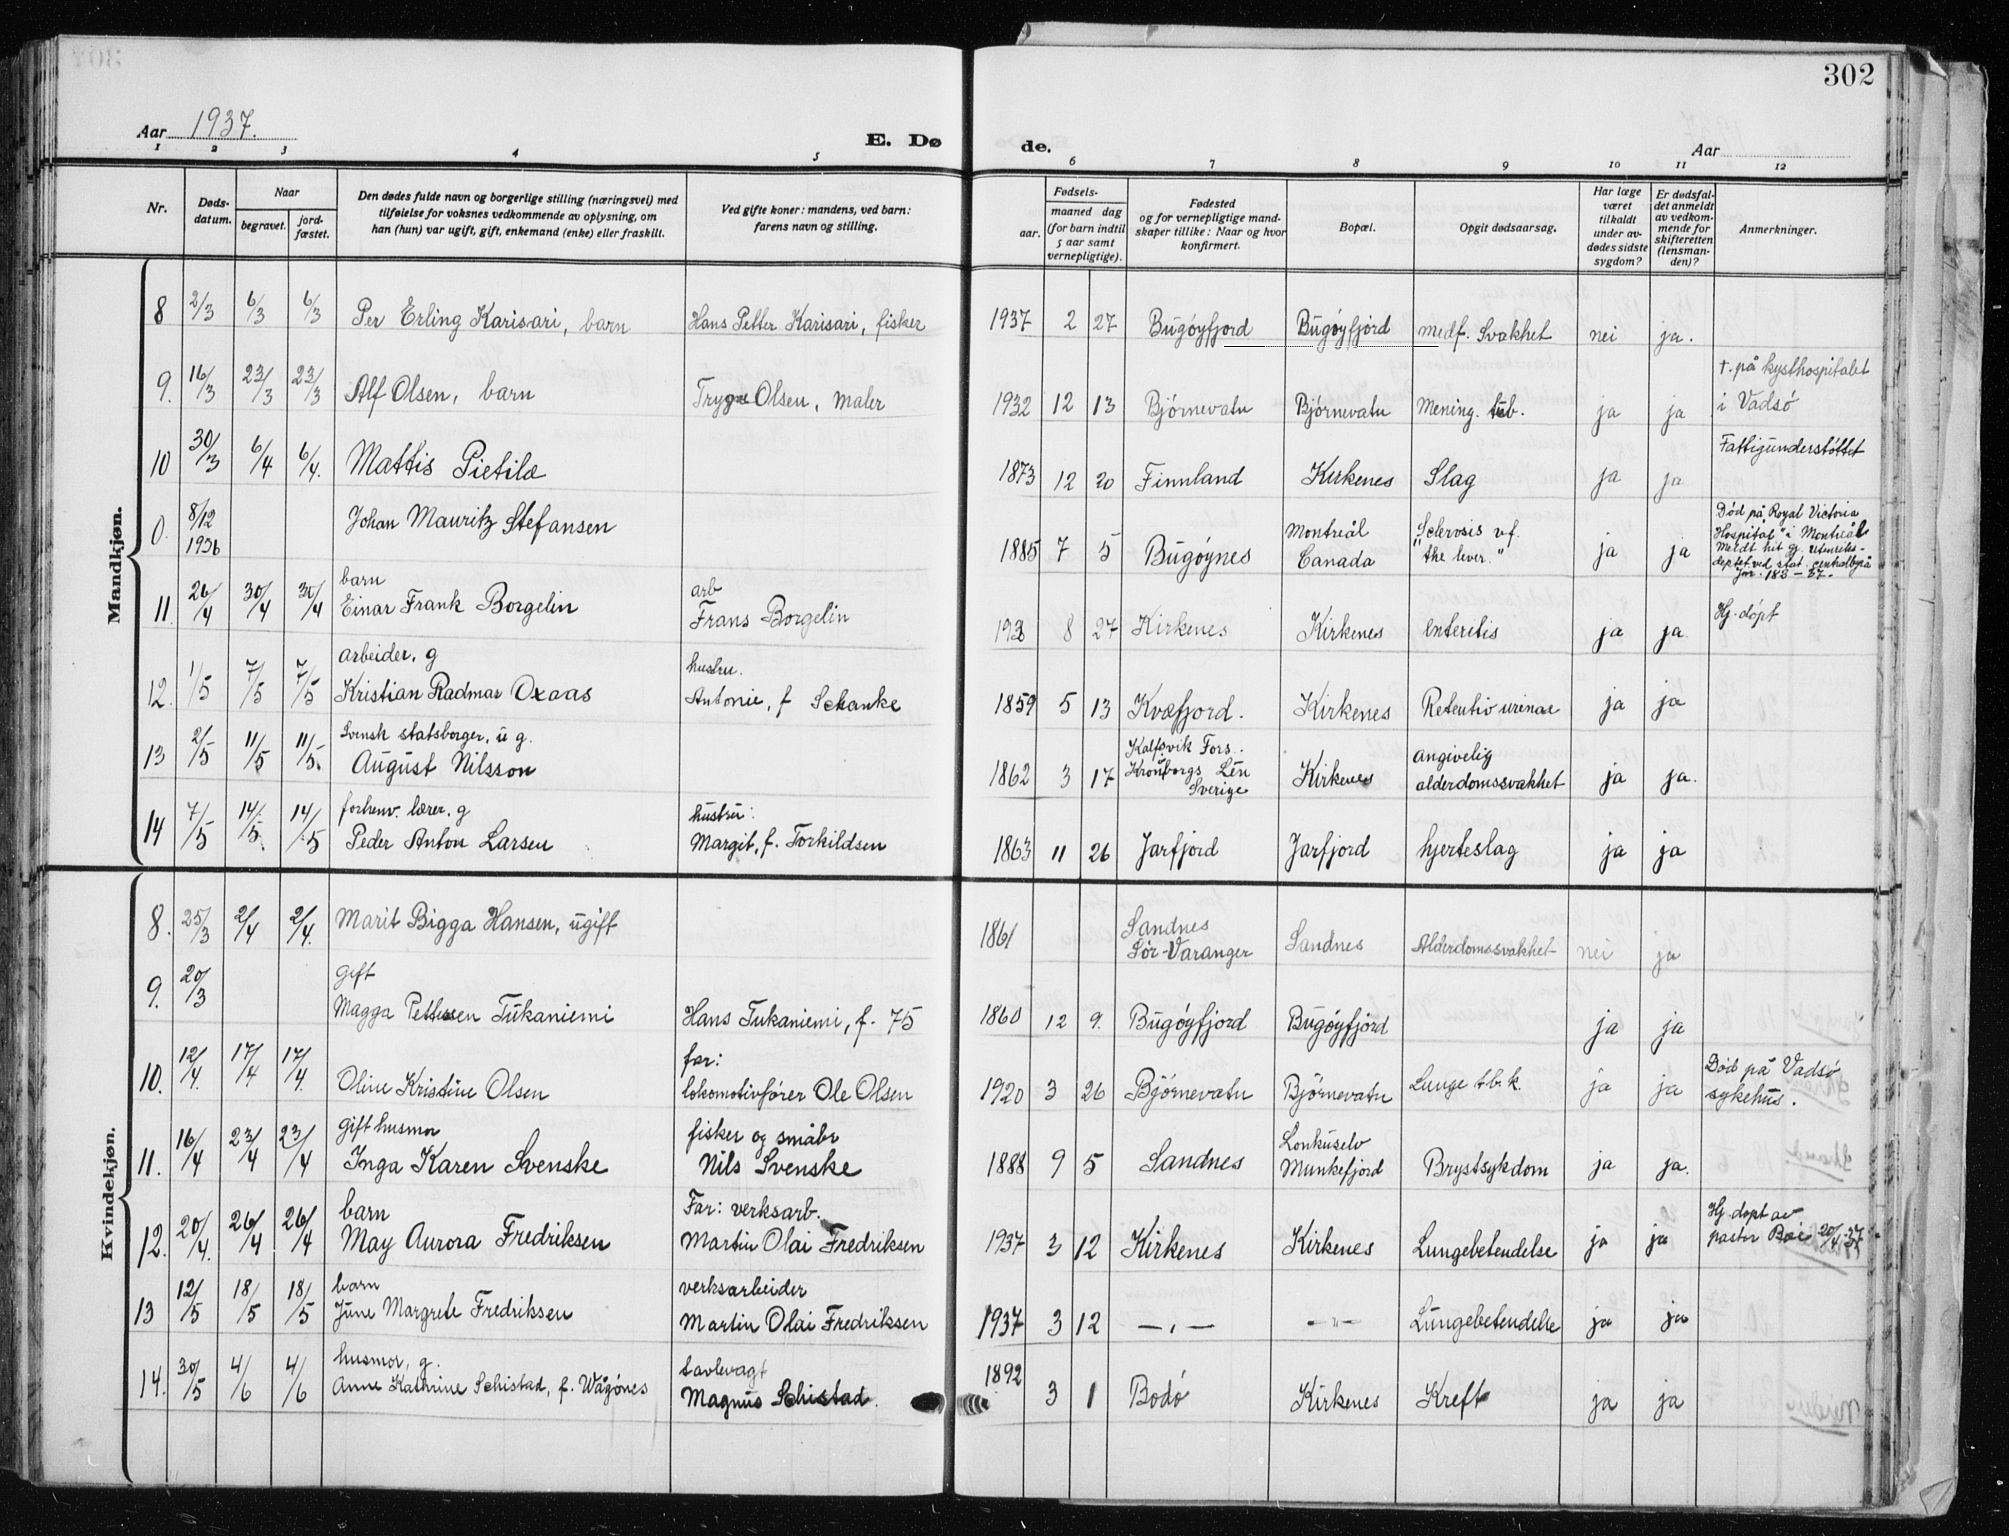 302
Aar 1937.
E. Dø de.
Aar
1 2 3 4 5 6 7 8 9 10 11 12
Nr.
Døds-
datum.
Naar
begravet.
jord-
fæstet.
Den dødes fulde navn og borgerlige stilling (næringsvei) med
tilføielse for voksnes vedkommende av oplysning, om
han (hun) var ugift, gift, enkemand (enke) eller fraskilt.
Ved gifte koner: mandens, ved barn:
farens navn og stilling.
Fødsels-
aar.
maaned dag
(for barn indtil
5 aar samt
vernepligtige).
Fødested
og for vernepligtige mand-
skaper tillike: Naar og hvor
konfirmert.
Bopæl.
Opgit dødsaarsag.
Har læge
været
tilkaldt
under av-
dødes sidste
sygdom?
Er dødsfal-
det anmeldt
av vedkom-
mende for
skifteretten
(lensman-
den)?
Anmerkninger.
Mandkjøn.
8 2/3 6/3 6/3 Per Erling Karisari, barn Hans Petter Karisari, fisker 1937 2 27 Bugøyfjord Bugøyfjord medf. Svakhet nei ja.
9. 16/3 23/3 23/3 Alf Olsen, barn Trygve Olsen, maler 1932 12 13 Bjørnevatn Bjørnevatn Mening. tub. ja ja † på kysthospitalet
i Vadsø
10 30/3 6/4 6/4. Mattis Pietilæ 1873 12 20 Finnland Kirkenes Slag ja ja Fattigunderstøttet
0. 8/12
1936 Johan Mauritz Stefansen 1885 7 5 Bugøynes Montreal
Canada "Sclerosis of
the lever." ja ja Død på Royal Victoria
Hospital" i Montreal
Meldt hit gj. utenriks-
deptet ved stat. centralbyrå
Jnr. 183 - 37.
11. 26/4 30/4 30/4 barn
Einar Frank Borgelin arb
Frans Borgelin 8 27 Kirkenes Kirkenes enteritis ja ja. Hj. døpt
12. 1/5 7/5 7/5 arbeider, g
Kristian Radmar Oxaas hustru.
Antonie, f Schanke 1859 5 13 Kvæfjord. Kirkenes Retentio urinae ja ja
13 2/5 11/5 11/5. Svensk statsborger, u g.
August Nilsson 1862 3 17 Kalfsvik Fors.
Kronborgs Lén
Sverige Kirkenes angivelig
alderdomssvakhet ja ja.
14 7/5 14/5. 14/5 forhenv. lærer, g
Peder Anton Larsen hustru:
Margit, f. Torkildsen 1863 11 26 Jarfjord Jarfjord hjerteslag ja ja
Kvindekjøn.
8. 25/3 2/4 2/4. Marit Bigga Hansen, ugift 1861 Sandnes
Sør-Varanger Sandnes Alderdomssvakhet nei ja
9. 20/3 gift
Magga Pettersen Tukaniemi Hans Tukaniemi, f. 75 1860 12 9. Bugøyfjord Bugøyfjord ja ja
10. 12/4. 17/4 17/4. Oline Kristine Olsen far:
lokomotivfører Ole Olsen 1920 3 26 Bjørnevatn Bjørnevatn Lunge t.b.k. ja ja Død på Vadsø
sykehus.
11. 16/4 23/4 23/4 gift husmor
Inga Karen Svenske fisker og småbr
Nils Svenske 1888 9 5 Sandnes Lonkuselv
Munkefjord Brystsykdom ja ja.
12. 20/4. 26/4 26/4 barn
May Aurora Fredriksen Far: verksarb.
Martin Olai Fredriksen 1937 3 12 Kirkenes Kirkenes Lungebetendelse ja ja Hj. døpt av
pastor 20/4 37
13 12/5 18/5 18/5 barn
June Margrete Fredriksen verksarbeider
Martin Olai Fredriksen 1937 3 12 — " — — " — Lungebetendelse ja ja
14. 30/5 4/6 4/6 husmor, g.
Anne Kathrine Schistad, f. Wågønes tavlevagt
Magnus Schistad. 1892 3 1 Bodø Kirkenes Kreft ja ja